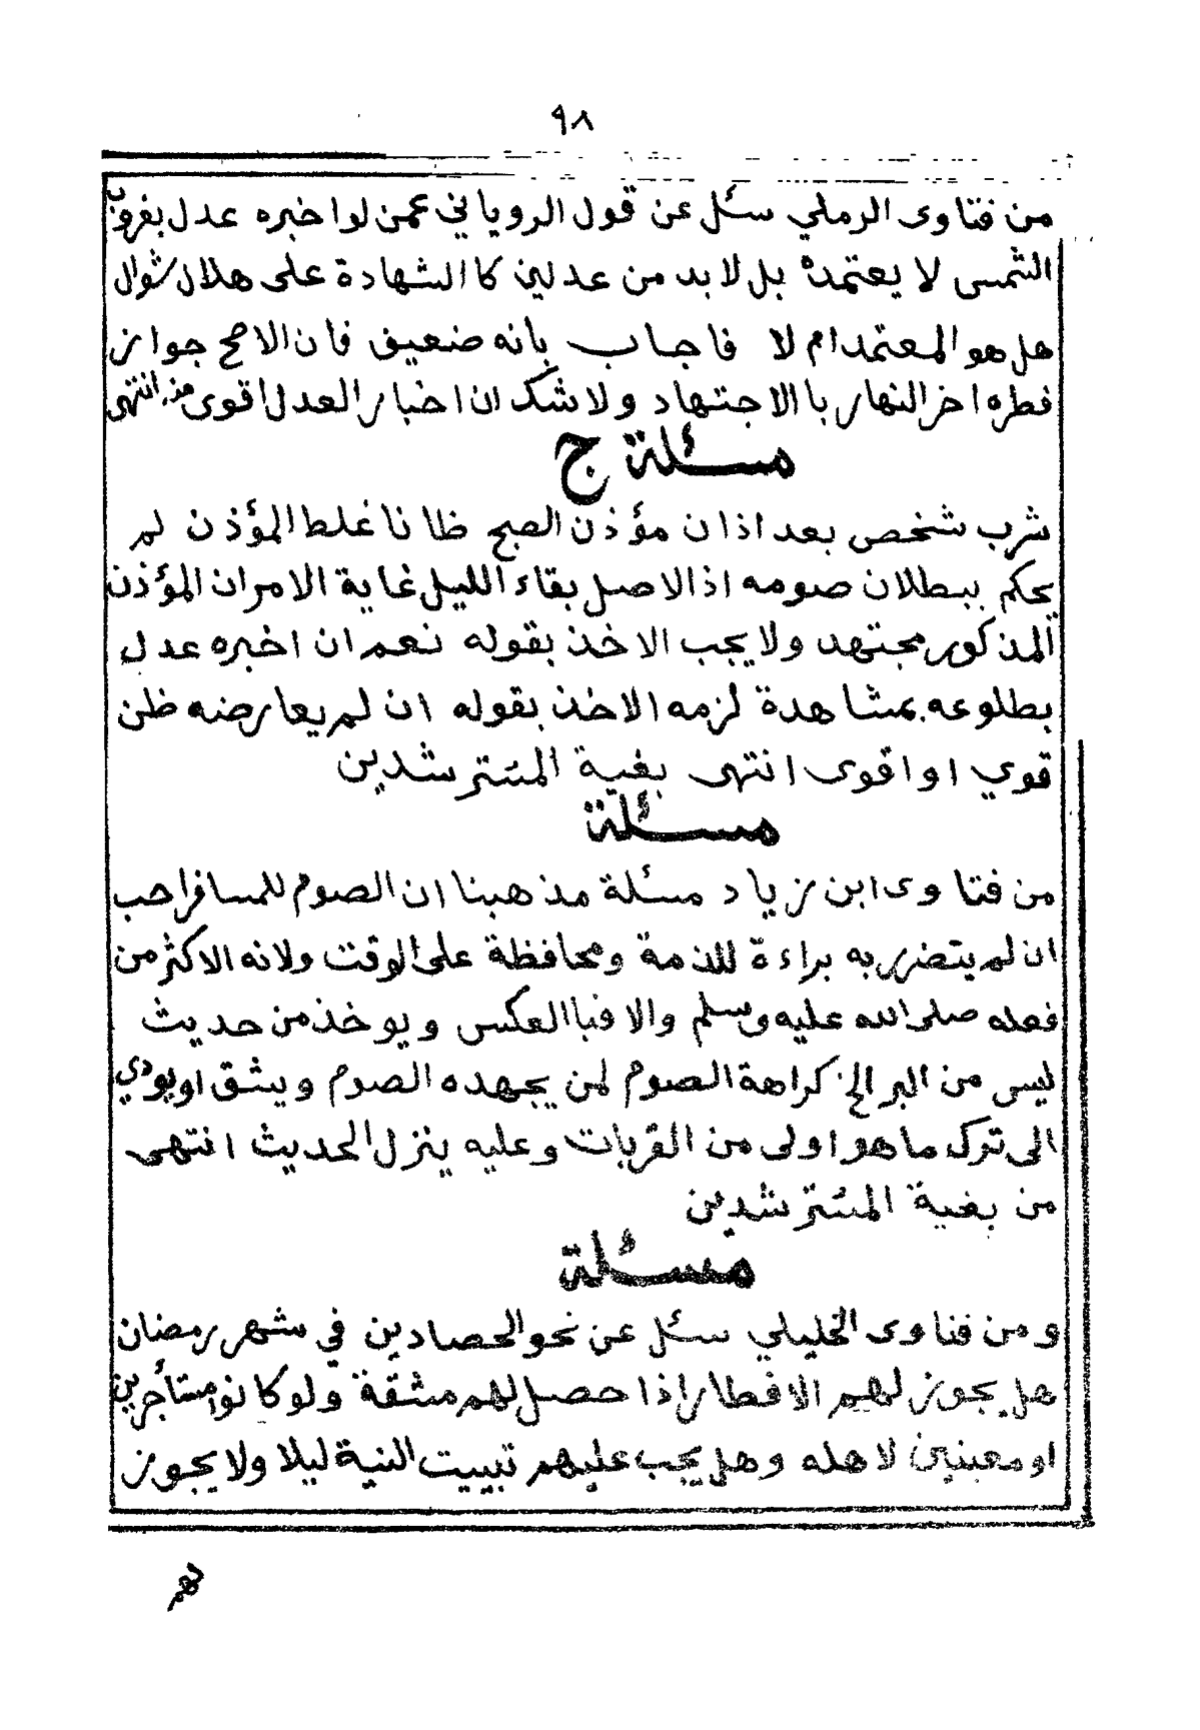 ٩٨
من فتاوى الرملي سئل عن قول الروياني عمن لو اخبره عدل بغروب
الشمس لا يعتمده بل لا بد من عدلين كالشهادة على هلال شوال
هل هو المعتمد ام لا فاجاب بانه ضعيف فان الاصح جواز
فطره اخر النهار بالاجتهاد ولا شك ان اخبار العدل اقوى منه انتهى
مسئلة ج
شرب شخص بعد اذان مؤذن الصبح ظانا غلط المؤذن لم
يحكم ببطلان صومه اذ الاصل بقاء الليل غاية الامر ان المؤذن
المذكور مجتهد ولا يجب الاخذ بقوله نعم ان اخبره عدل
بطلوعه بمشاهدة لزمه الاخذ بقوله ان لم يعارضه ظن
قوي او اقوى انتهى بغية المسترشدين
مسئلة
من فتاوى ابن زياد مسئلة مذهبنا ان الصوم للمسافر احب
ان لم يتضرر به براءة للذمة ومحافظة على الوقت ولانه الاكثر من
فعله صلى الله عليه وسلم والا فبالعكس ويوخذ من حديث
ليس من البر الخ كراهة الصوم لمن يجهده الصوم ويشق او يودي
الى ترك ما هو اولى من القربات وعليه ينزل الحديث انتهى
من بغية المسترشدين
مسئلة
ومن فتاوى الخليلي سئل عن نحو الحصادين في شهر رمضان
هل يجوز لهم الافطار اذا حصل لهم مشقة ولو كانوا مستأجرين
او معينين لاهله وهل يجب عليهم تبييت النية ليلا ولا يجوز
لهم